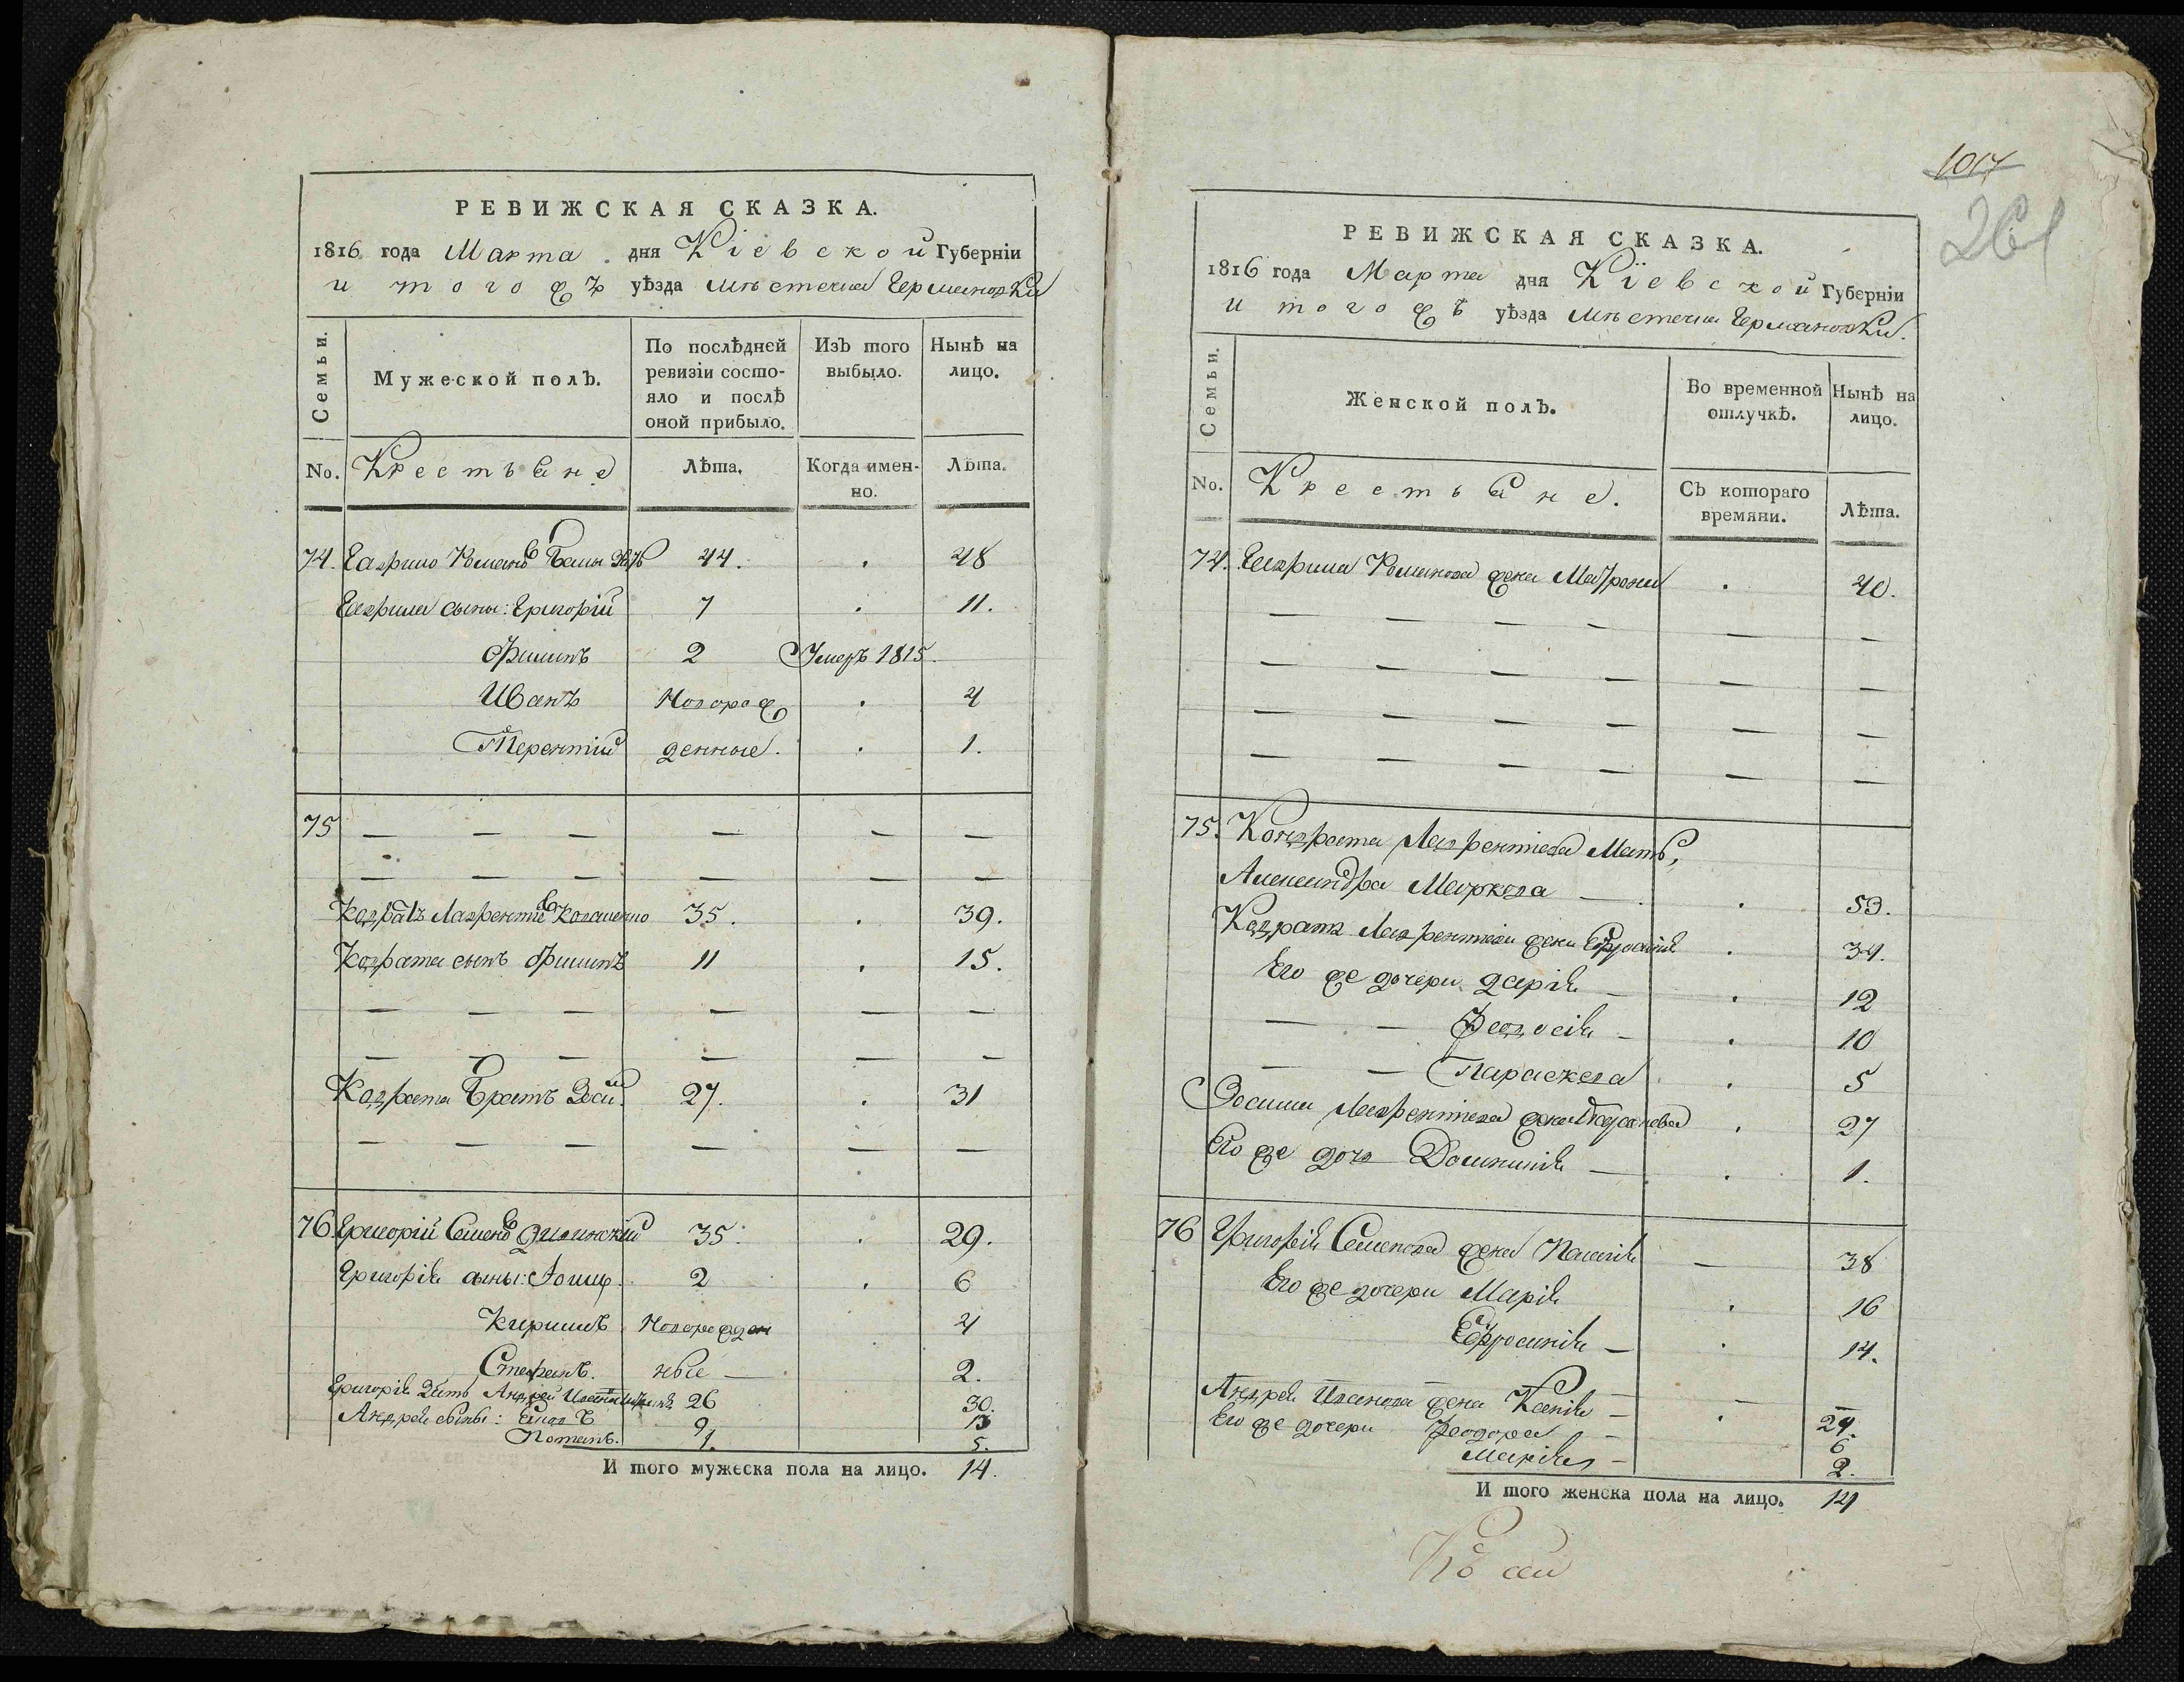 РЕВИЖСКАЯ СКАЗКА.
1816 года Марта дня Кіевской Губерніи
и тогожъ уѣзда мѣстечка Германовки
Семьи.
Мужеской полъ.
По послѣдней ревизіи состояло и послѣ оной прибыло.
Изъ того выбыло.
Нынѣ на лицо.
No. Крестьяне
Лѣта.
Когда именно.
Лѣта.
74. Гаврило Романовъ 44. 48
Гаврила сыны: Григорій 7 11.
Филипъ 2 Умеръ 1815.
Иванъ Новорож 4
Терентій денные. 1.
75 — — — — — —
— — — — — —
Кодратъ Лаврентіевъ 35. 39.
Кодрата сынъ Филипъ 11 15.
— — — — — —
— — — — — —
Кодрата братъ Зосим 27. 31
— — — — — —
76. Григорій Семеновъ 35. 29.
Григорія сыны: 2 6
Кирилъ Новорожден 4
Стефанъ. ные — 2.
Григорія Зять Андрей 26 30.
Андрея сыны: 9 13
Потапъ. 1. 5.
И того мужеска пола на лицо. 14.
1017
261
РЕВИЖСКАЯ СКАЗКА.
1816 года Марта дня Кїевской Губерніи
и тогожъ уѣзда мѣстечка Германовки.
Семьи.
Женской полъ.
Во временной отлучкѣ.
Нынѣ на лицо.
No. Крестьяне.
Съ котораго времяни.
Лѣта.
74. Гаврила Романова жена Матрона 40.
— — — — — —
— — — — — —
— — — — — —
— — — — — —
75. Кондрата Лаврентіева Мать,
Александра Маркова — 59.
Кодрата Лаврентіева жена Ефросинія 34.
Его же дочери Дарія — 12
— — Феодосія — 10
— — Параскева 5
Зосима Лаврентіева жена 27
Его же дочь Домникія — 1.
76 Григорія Семенова жена Пелагія — 38
Его же дочери Марія 16
Ефросинія — 14.
Андрея Иванова жена Ксенія — 24.
Его же дочери Феодора — 6
Марія — 2.
И того женска пола на лицо. 14
Къ сей